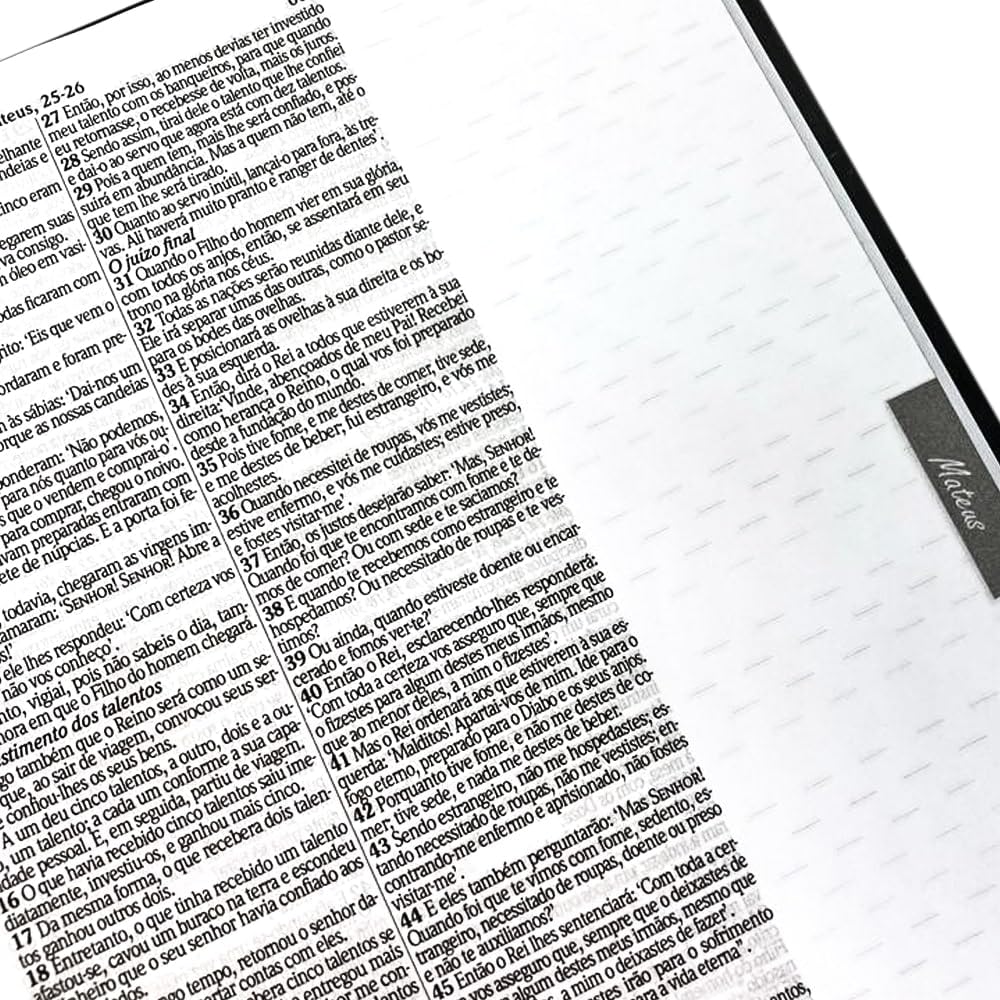 ateus, 25-26
elhante
ndeias e
inco eram
egarem suas
va consigo.
m óleo em vasi-
odas ficaram com
rito: 'Eis que vem o
ordaram e foram pre-
m às sábias: 'Dai-nos um
orque as nossas candeias
ponderam: 'Não podemos,
para nós quanto para vós ou-
s que o vendem e comprai-o'
para comprar, chegou o noivo.
vam preparadas entraram com
ete de núpcias. E a porta foi fe-
todavia, chegaram as virgens im-
amaram: 'SENHOR! SENHOR! Abre a
s!'
ele lhes respondeu: 'Com certeza vos
não vos conheço'.
nto, vigiai, pois não sabeis o dia, tam-
hora em que o Filho do homem chegará.
stimento dos talentos
go também que o Reino será como um se-
que, ao sair de viagem, convocou seus ser-
e confiou-lhes os seus bens.
A um deu cinco talentos, a outro, dois e a ou-
o, um talento; a cada um conforme a sua capa-
idade pessoal. E, em seguida, partiu de viagem.
16 O que havia recebido cinco talentos saiu ime-
diatamente, investiu-os, e ganhou mais cinco.
17 Da mesma forma, o que recebera dois talen-
tos ganhou outros dois.
18 Entretanto, o que tinha recebido um talento
afastou-se, cavou um buraco na terra e escondeu
nheiro que o seu senhor havia confiado aos
dados.
ngo tempo, retornou o senhor da-
ertar contas com eles.
bera cinco talentos se
entregou mais
me con-
27 Então, por isso, ao menos devias ter investido
meu talento com os banqueiros, para que quando
eu retornasse, o recebesse de volta, mais os juros.
28 Sendo assim, tirai dele o talento que lhe confiei
e dai-o ao servo que agora está com dez talentos.
29 Pois a quem tem, mais lhe será confiado, e pos-
suirá em abundância. Mas a quem não tem, até o
que tem lhe será tirado.
30 Quanto ao servo inútil, lançai-o para fora, às tre-
vas. Ali haverá muito pranto e ranger de dentes'.
O juízo final
31 Quando o Filho do homem vier em sua glória,
com todos os anjos, então, se assentará em seu
trono na glória nos céus.
32 Todas as nações serão reunidas diante dele, e
Ele irá separar umas das outras, como o pastor se-
para os bodes das ovelhas.
33 E posicionará as ovelhas à sua direita e os bo-
des à sua esquerda.
34 Então, dirá o Rei a todos que estiverem à sua
direita: 'Vinde, abençoados de meu Pai! Recebei
como herança o Reino, o qual vos foi preparado
desde a fundação do mundo.
35 Pois tive fome, e me destes de comer, tive sede,
e me destes de beber, fui estrangeiro, e vós me
acolhestes.
36 Quando necessitei de roupas, vós me vestistes;
estive enfermo, e vós me cuidastes; estive preso,
e fostes visitar-me'.
37 Então, os justos desejarão saber: 'Mas, SENHOR!
Quando foi que te encontramos com fome e te de-
mos de comer? Ou com sede e te saciamos?
38 E quando te recebemos como estrangeiro e te
hospedamos? Ou necessitado de roupas e te ves-
timos?
39 Ou ainda, quando estiveste doente ou encar-
cerado e fomos ver-te?'
40 Então o Rei, esclarecendo-lhes responderá:
'Com toda a certeza vos asseguro que, sempre que
o fizestes para algum destes meus irmãos, mesmo
que ao menor deles, a mim o fizestes'.
41 Mas o Rei ordenará aos que estiverem à sua es-
querda: 'Malditos! Apartai-vos de mim. Ide para o
fogo eterno, preparado para o Diabo e os seus anjos.
42 Porquanto tive fome, e não me destes de co-
mer; tive sede, e nada me destes de beber.
43 Sendo estrangeiro, não me hospedastes; es-
tando necessitado de roupas, não me vestistes; en-
contrando-me enfermo e aprisionado, não fostes
visitar-me'.
44 E eles também perguntarão: 'Mas SENHOR!
Quando foi que te vimos com fome, sedento, es-
trangeiro, necessitado de roupas, doente ou preso
e não te auxiliamos?'
45 Então o Rei lhes sentenciará: 'Com toda a cer-
vos asseguro que, sempre que o deixastes de
algum destes meus irmãos, mesmo que
a mim o deixastes de fazer'.
stes irão para o sofrimento
para a vida eterna".
Mateus